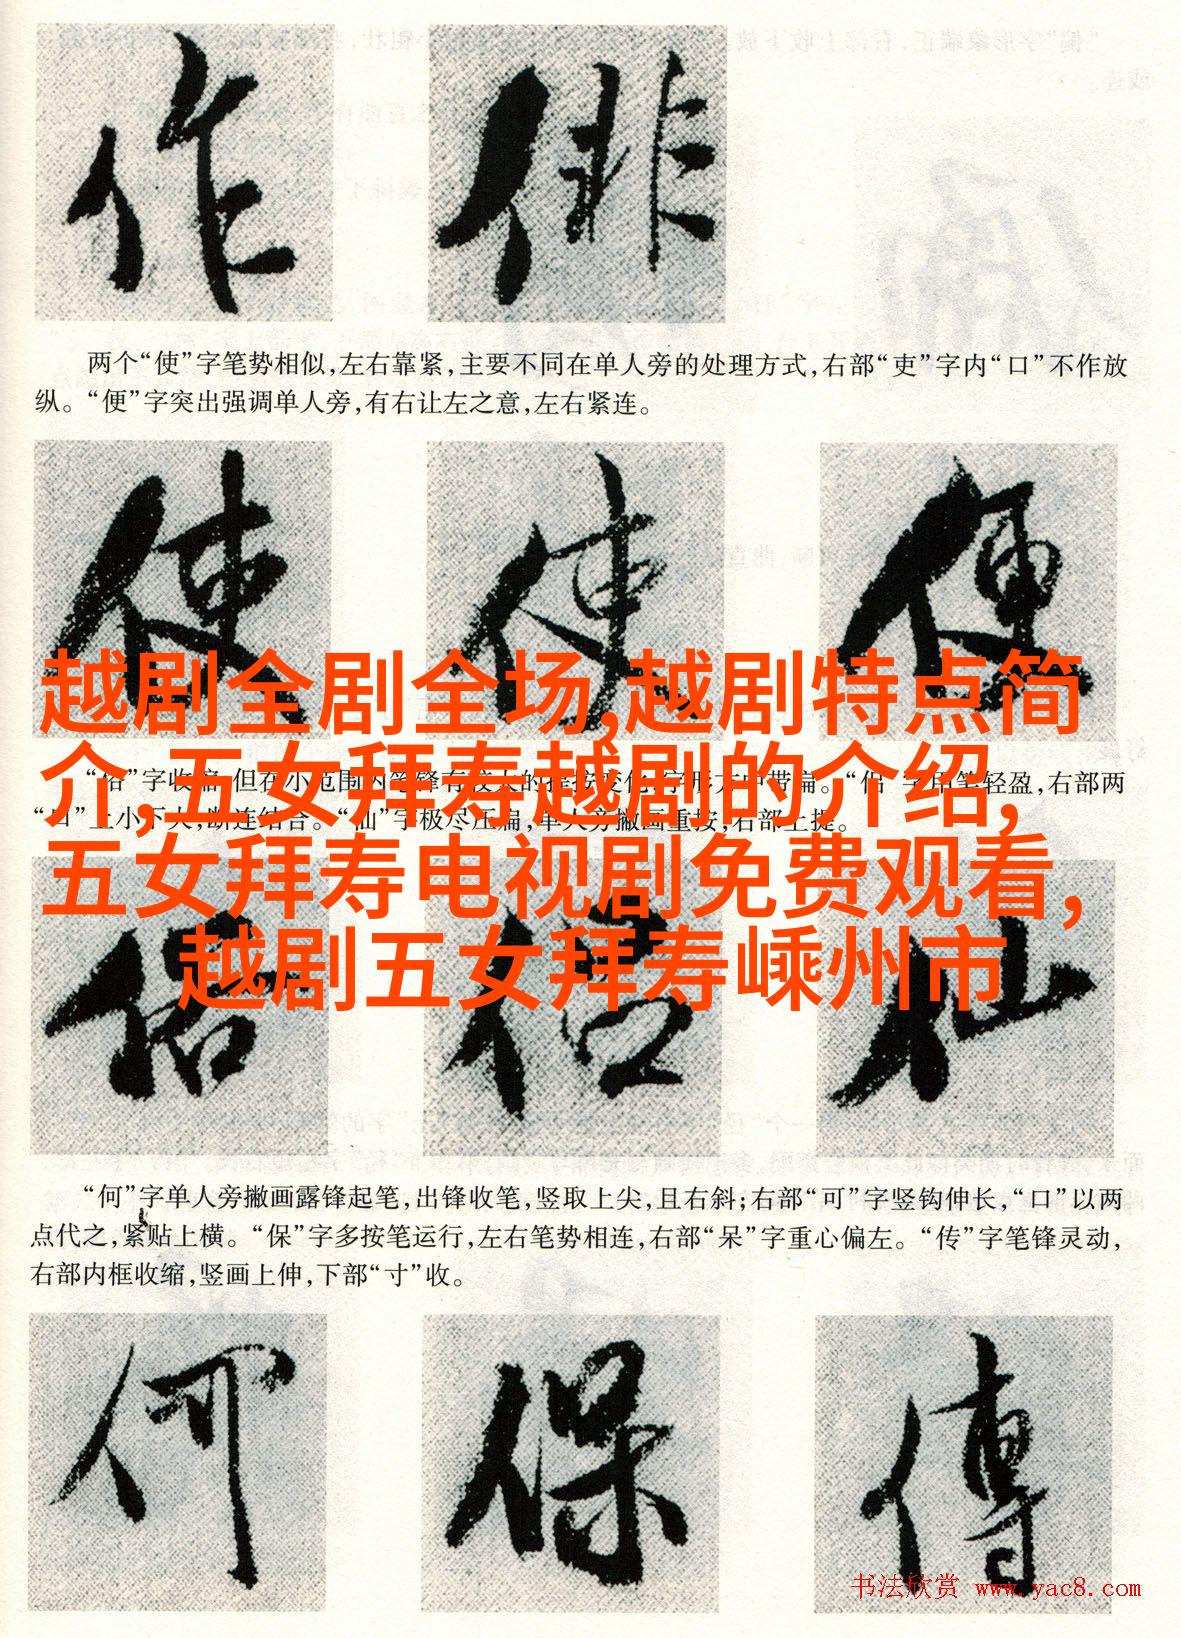 作 俳
两个“使”字笔势相似,左右靠紧,主要不同在单人旁的处理方式,右部“吏”字内“口”不作放
纵。“便”字突出强调单人旁,有右让左之意,左右紧连。
使 使 便
越剧全剧全场,越剧特点简
介,五女拜寿越剧的介绍,
“俗”字收缩,但在小范围内笔锋有较大的提按变化,字形方中带扁。“侣”字用笔轻盈,右部两
“口”上小下大,断连结合。“仙”字极尽压扁,单人旁撇画重按,右部上提。
五女拜寿电视剧免费观看,
越剧五女拜寿嵊州市
俗 侣 仙
“何”字单人旁撇画露锋起笔,出锋收笔,竖取上尖,且右斜;右部“可”字竖钩伸长,“口”以两
点代之,紧贴上横。“保”字多按笔运行,左右笔势相连,右部“呆”字重心偏左。“传”字笔锋灵动,
右部内框收缩,竖画上伸,下部“寸”收。
何 保 傳
书法欣赏 www.yac8.com